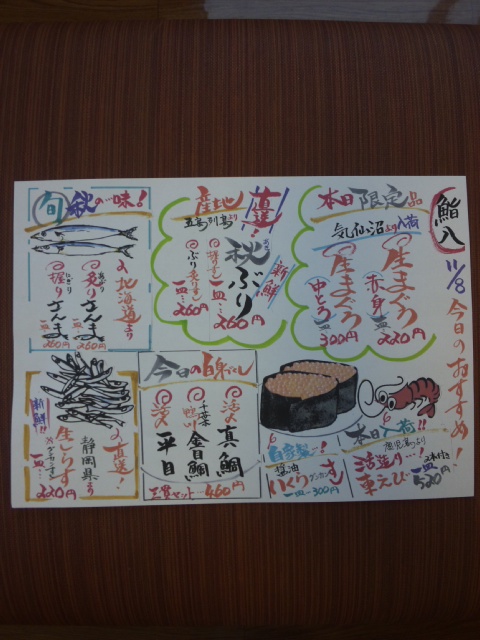 鮨八
11/8 今日のおすすめ!!
本日限定品
気仙沼より入荷
生まぐろ
赤身
一皿…220円
生まぐろ
中とろ
一皿…300円
産地直送!
五島列島より
新鮮
秋ぶり
一皿…260円
ぶり
一皿…260円
旬 秋の味!
北海道より
炙りさんま
一皿 260円
握りさんま
一皿 260円
自家製!
醤油いくらグンカン
一皿…300円
本日入荷!!
鹿児島より
活〆造り…!
車えび
一皿 2本付き 520円
今日の白身づくし
活〆真鯛
千葉 鴨川 金目鯛
活〆平目
三貫セット…460円
直送!
静岡県より
新鮮!!
生しらす
一皿…220円